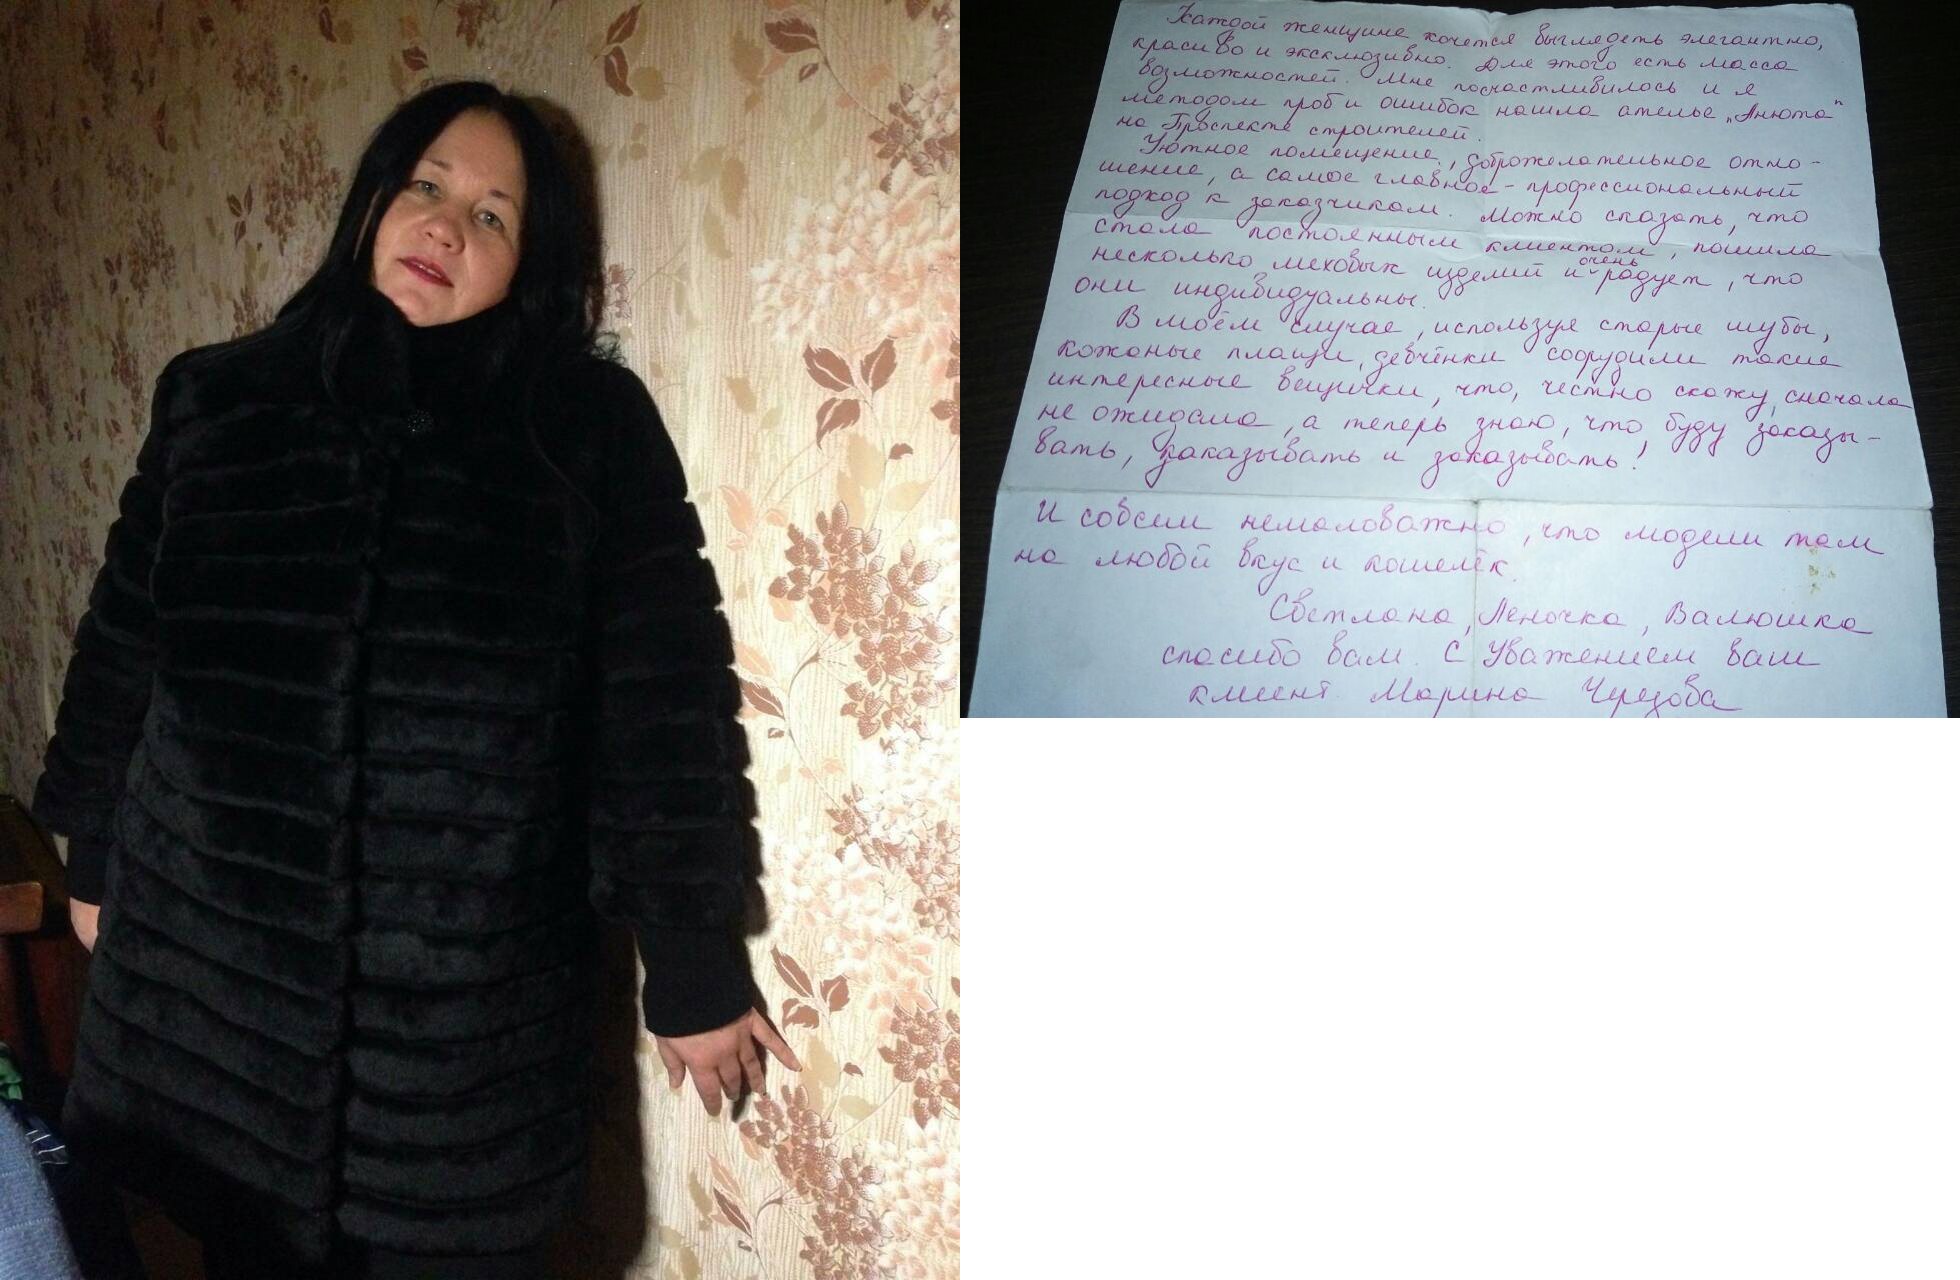 Каждой женщине хочется выглядеть элегантно,
красиво и эксклюзивно. Для этого есть масса
возможностей. Мне посчастливилось и я
методом проб и ошибок нашла ателье „Анюта"
на Проспекте строителей.
Уютное помещение, доброжелательное отно-
шение, а самое главное - профессиональный
подход к заказчикам. Можно сказать, что
стала постоянным клиентом, пошила
несколько меховых изделий и очень радует, что
они индивидуальны.
В моём случае, используя старые шубы,
кожаные плащи, девчёнки соорудили такие
интересные вещички, что, честно скажу, сначала
не ожидала, а теперь знаю, что буду заказы-
вать, заказывать и заказывать!
И совсем немаловажно, что модели там
на любой вкус и кошелёк.
Светлана, Леночка, Валюшка
спасибо вам. С Уважением ваш
клиент Марина Черезова